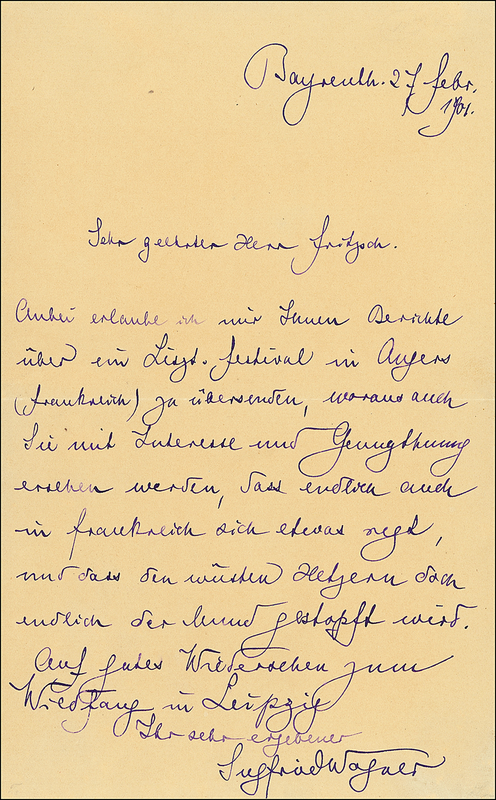 Bayreuth. 27 febr.
1901.
Sehr geehrter Herr Fritzsch.
Anbei erlaube ich mir Ihnen Berichte
über ein Liszt-festival in Angers
(frankreich) zu übersenden, woraus auch
Sie mit Interesse und Genugthuung
ersehen werden, dass endlich auch
in frankreich sich etwas regt,
und dass den wüsten Hetzern doch
endlich der Mund gestopft wird.
Auf gutes Wiedersehen zum
Wildfang in Leipzig
Ihr sehr ergebener
Siegfried Wagner